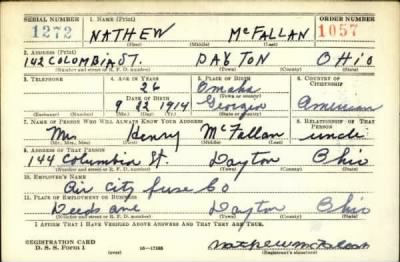 SERIAL NUMBER 1. NAME (Print) ORDER NUMBER
1272 NATHEW McFALLAN 1057
(First) (Middle) (Last)
2. ADDRESS (Print)
142 COLOMBIA ST. DAYTON OHIO
(Number and street or R. F. D. number) (Town) (County) (State)
3. TELEPHONE 4. AGE IN YEARS 5. PLACE OF BIRTH 6. COUNTRY OF CITIZENSHIP
26 Omaha
DATE OF BIRTH (Town or county)
9 22 1914 Georgia American
(Mo.) (Day) (Yr.) (State or country)
7. NAME OF PERSON WHO WILL ALWAYS KNOW YOUR ADDRESS 8. RELATIONSHIP OF THAT PERSON
Mrs Henry McFallan uncle
(Mr., Mrs., Miss) (First) (Middle) (Last)
9. ADDRESS OF THAT PERSON
144 Columbia St. Dayton Ohio
(Number and street or R. F. D. number) (Town) (County) (State)
10. EMPLOYER'S NAME
Air City fuse Co
11. PLACE OF EMPLOYMENT OR BUSINESS
Deeds ave Dayton Ohio
(Number and street or R. F. D. number) (Town) (County) (State)
I AFFIRM THAT I HAVE VERIFIED ABOVE ANSWERS AND THAT THEY ARE TRUE.
REGISTRATION CARD
D. S. S. Form 1 (over) 16—17105